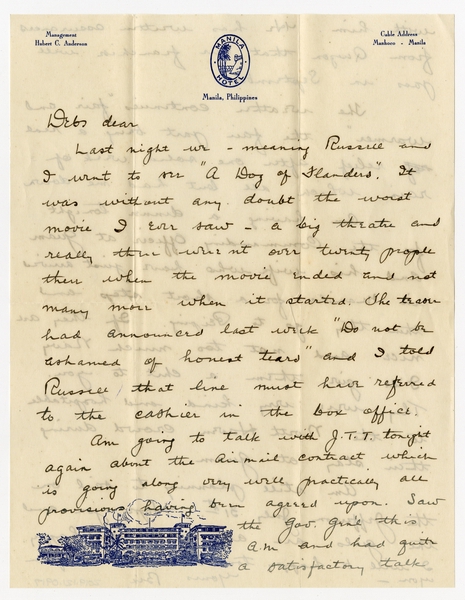 Management
Hubert C. Anderson
MANILA HOTEL
Manila, Philippines
Cable Address
Manhoco - Manila
Debs dear
Last night we - meaning Russell and
I went to see "A Dog of Flanders". It
was without any doubt the worst
movie I ever saw - a big theatre and
really there weren't over twenty people
there when the movie ended and not
many more when it started. The
had announced last week "Do not be
ashamed of honest tears" and I told
Russell that line must have referred
to the cashier in the box office.
Am going to talk with J.T.T. tonight
again about the Airmail contract which
is going along very well practically all
provisions having been agreed upon. Saw
the Gov. Genl this
a.m. and had quite
a satisfactory talk